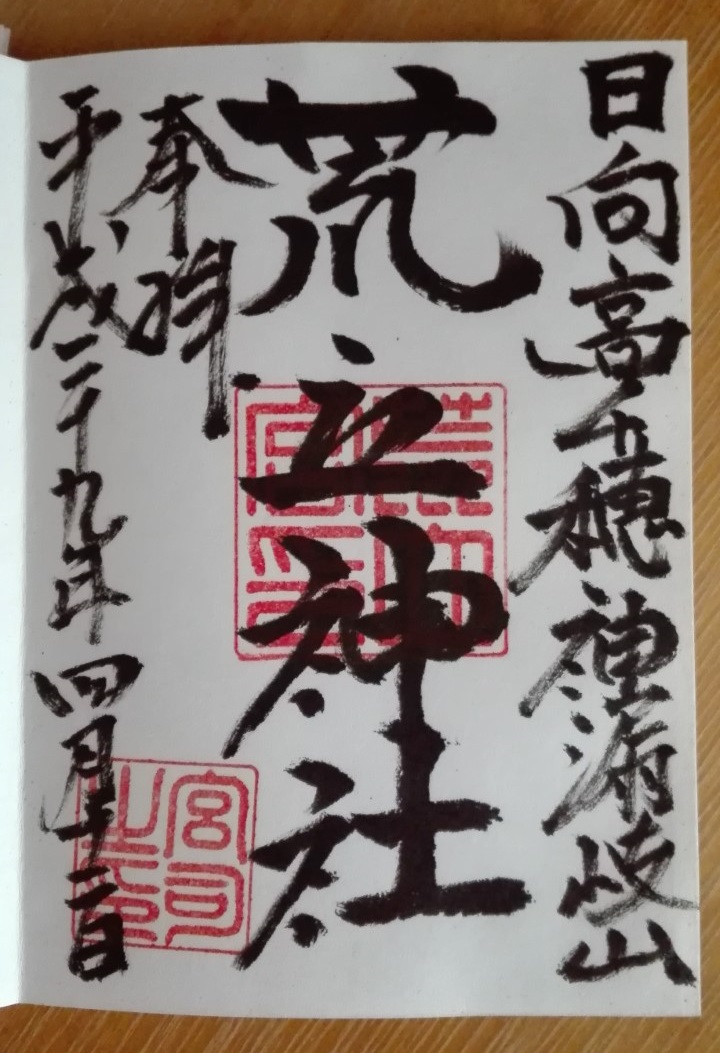 日向高千穂神漏岐山
荒立神社
奉拝
平成二十九年四月十二日
宮司之印